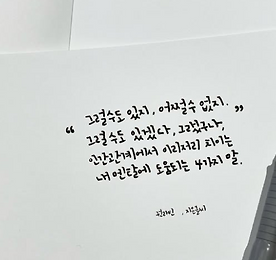 “ 그럴수도 있지, 어쩌겠수 없지.
그럴수도 있겠다, 그렇구나, ”
인간관계에서 이리저리 치이는
내 멘탈에 도움되는 4가지 말.
지은글씨